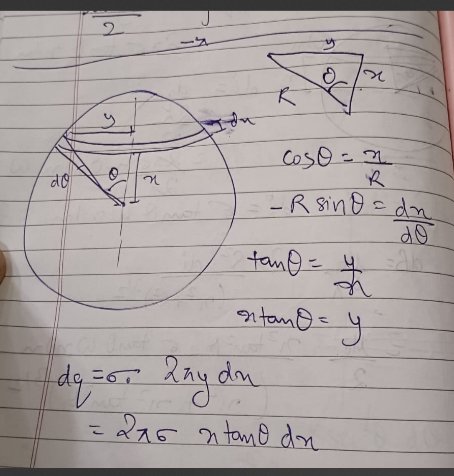 2
-x
y
θ
x
R
y
dx
dθ
θ
x
cosθ = x/R
-R sinθ = dx/dθ
tanθ = y/x
x tanθ = y
dq = σ. 2πy dx
= 2πσ x tanθ dx